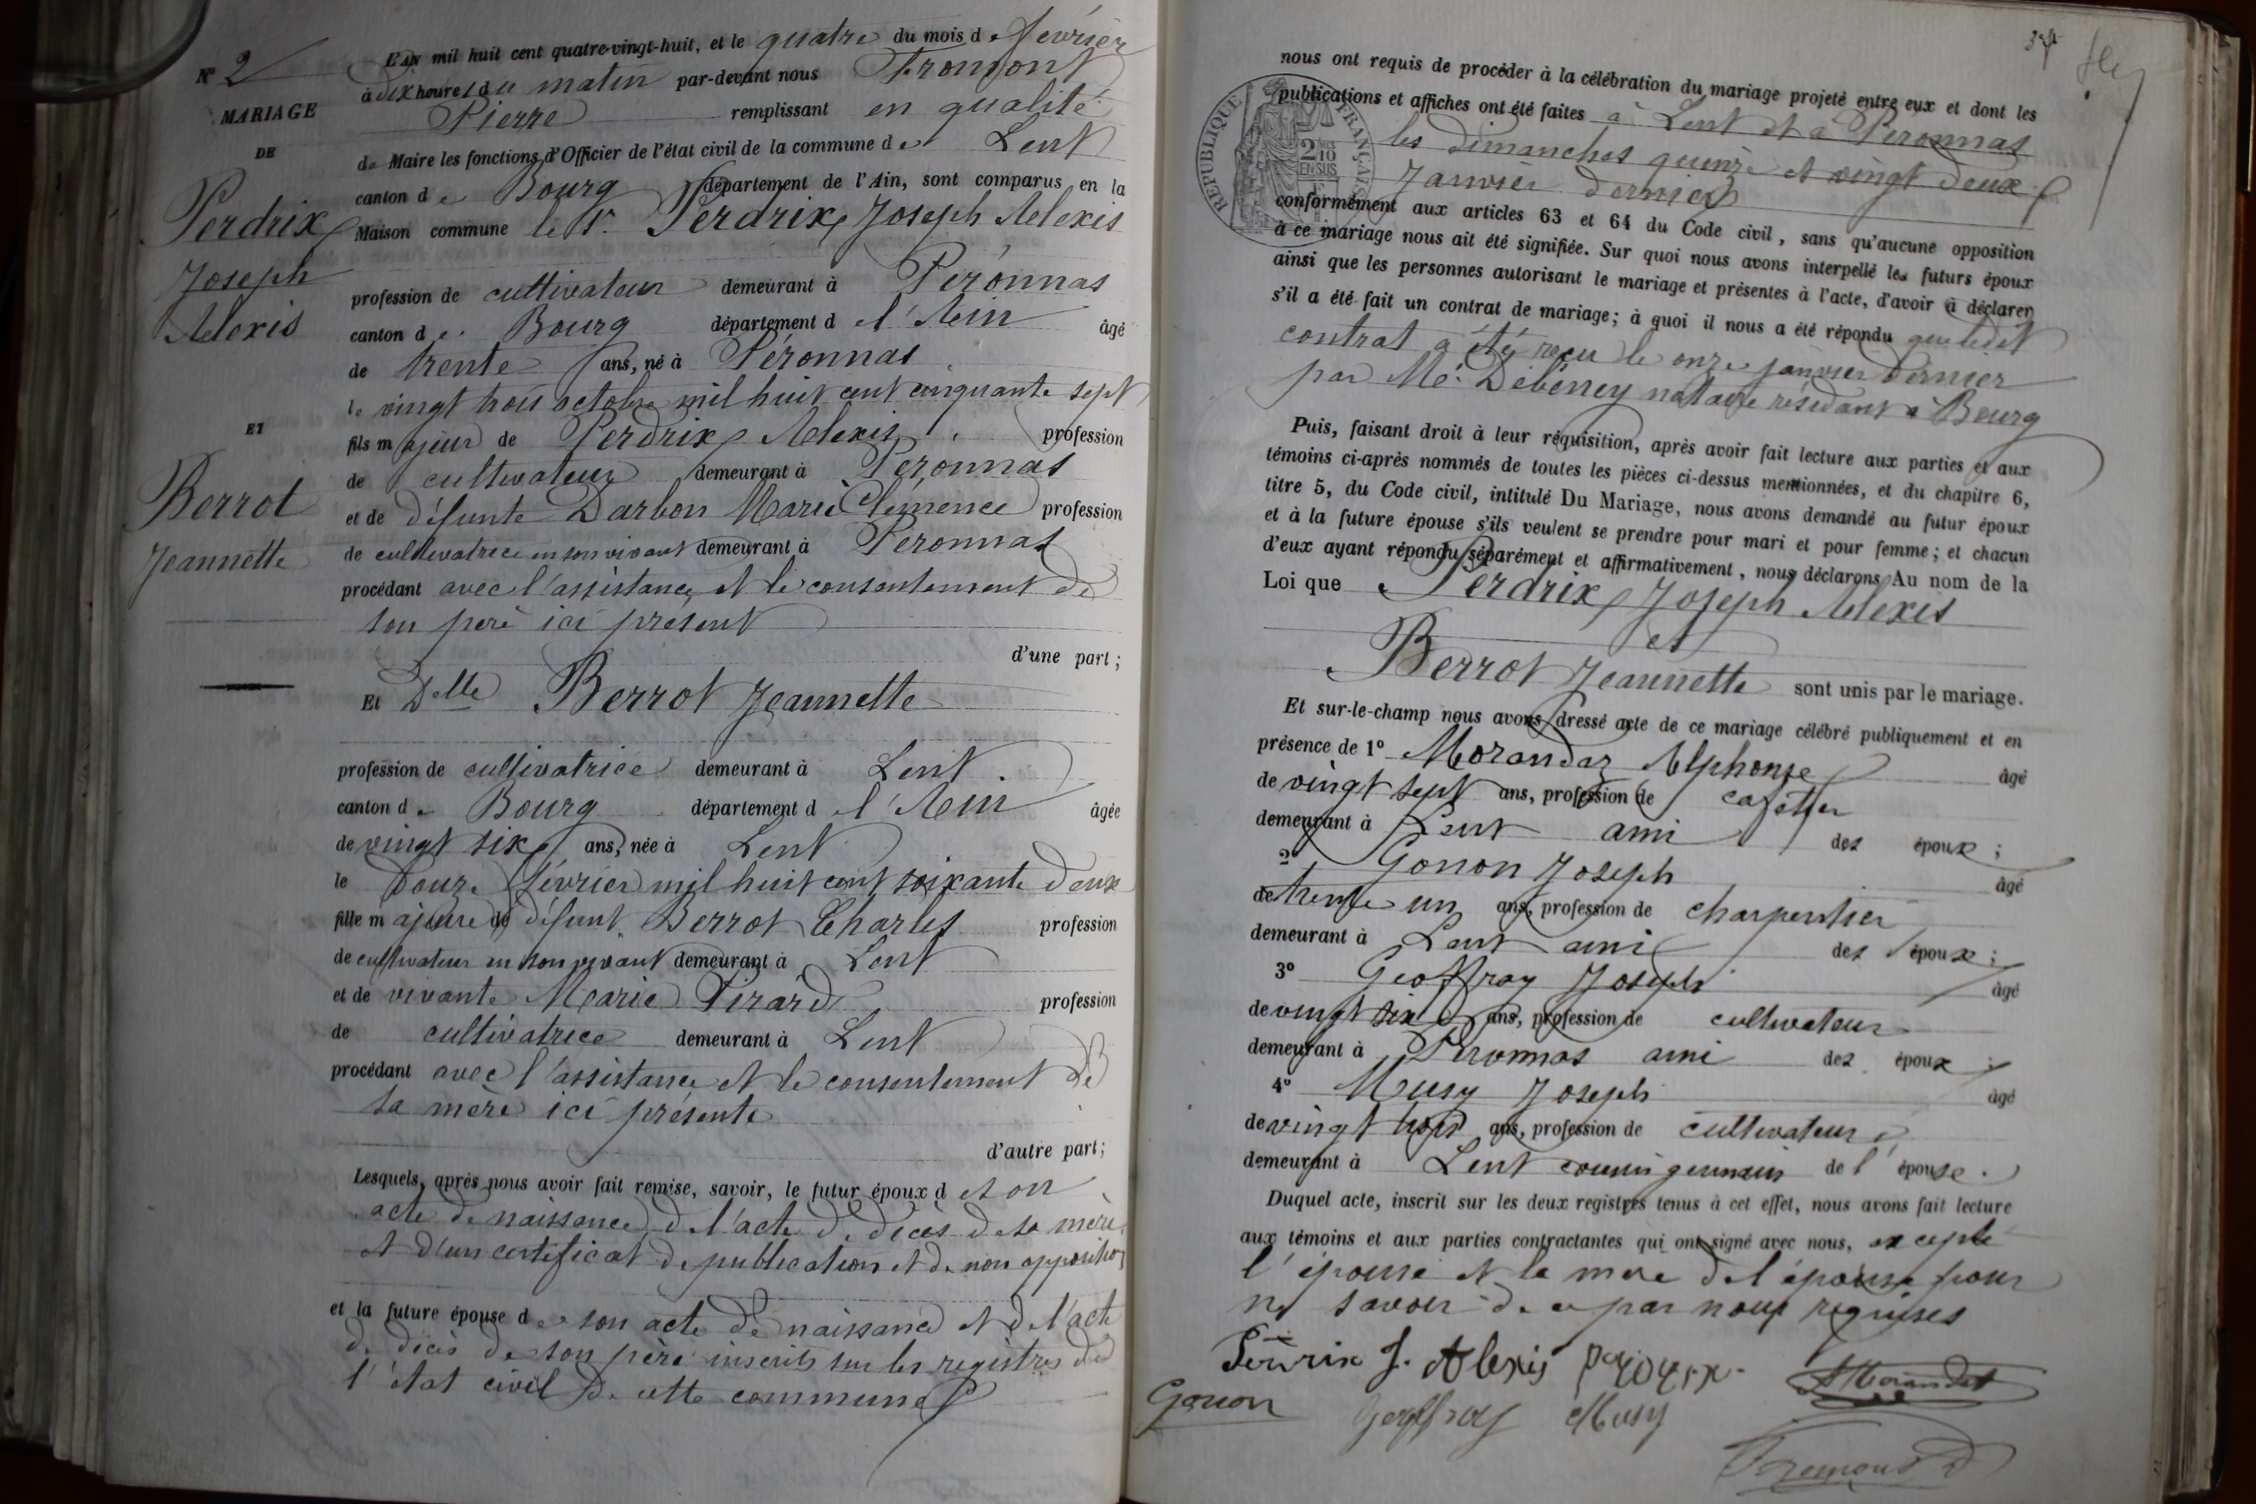 N° 2
MARIAGE
DE
Perdrix
Joseph
Alexis
ET
Berrot
Jeannette
L'AN mil huit cent quatre-vingt-huit, et le quatre du mois de février
à dix heures du matin par-devant nous Fromont
Pierre remplissant en qualité
de Maire les fonctions d'Officier de l'état civil de la commune de Lent
canton de Bourg département de l'Ain, sont comparus en la
Maison commune le Sr. Perdrix Joseph Alexis
profession de cultivateur demeurant à Péronnas
canton de Bourg département de l'Ain âgé
de trente ans, né à Péronnas
le vingt trois octobre mil huit cent cinquante sept
fils majeur de Perdrix Alexis profession
de cultivateur demeurant à Péronnas
et de défunte Darbon Marie Clémence profession
de cultivatrice en son vivant demeurant à Péronnas
procédant avec l'assistance et le consentement de
son père ici présent
d'une part ;
Et Delle Berrot Jeannette
profession de cultivatrice demeurant à Lent.
canton de Bourg département de l'Ain âgée
de vingt six ans, née à Lent
le douze février mil huit cent soixante deux
fille majeure de défunt Berrot Charles profession
de cultivateur en son vivant demeurant à Lent
et de vivante Marie Pirard profession
de cultivatrice demeurant à Lent
procédant avec l'assistance et le consentement de
sa mère ici présente
d'autre part ;
Lesquels, après nous avoir fait remise, savoir, le futur époux de son
acte de naissance, de l'acte de décès de sa mère
et d'un certificat de publication et de non opposition
et la future épouse de son acte de naissance et de l'acte
de décès de son père inscrits sur les registres de
l'état civil de cette commune
RÉPUBLIQUE FRANÇAISE
2/10 EN SUS
nous ont requis de procéder à la célébration du mariage projeté entre eux et dont les
publications et affiches ont été faites à Lent et à Péronnas
les dimanches quinze et vingt deux
Janvier dernier
conformément aux articles 63 et 64 du Code civil, sans qu'aucune opposition
à ce mariage nous ait été signifiée. Sur quoi nous avons interpellé les futurs époux
ainsi que les personnes autorisant le mariage et présentes à l'acte, d'avoir à déclarer
s'il a été fait un contrat de mariage ; à quoi il nous a été répondu que ledit
contrat a été reçu le onze janvier dernier
par Me. Débeney notaire résidant à Bourg
Puis, faisant droit à leur réquisition, après avoir fait lecture aux parties et aux
témoins ci-après nommés de toutes les pièces ci-dessus mentionnées, et du chapitre 6,
titre 5, du Code civil, intitulé Du Mariage, nous avons demandé au futur époux
et à la future épouse s'ils veulent se prendre pour mari et pour femme ; et chacun
d'eux ayant répondu séparément et affirmativement, nous déclarons Au nom de la
Loi que Perdrix Joseph Alexis
et
Berrot Jeannette sont unis par le mariage.
Et sur-le-champ nous avons dressé acte de ce mariage célébré publiquement et en
présence de 1° Morandaz Alphonse âgé
de vingt sept ans, profession de cafetier
demeurant à Lent ami des époux ;
2° Gonon Joseph âgé
de trente un ans, profession de charpentier
demeurant à Lent ami des époux ;
3° Geoffray Joseph âgé
de vingt six ans, profession de cultivateur
demeurant à Péronnas ami des époux ;
4° Musy Joseph âgé
de vingt trois ans, profession de cultivateur
demeurant à Lent cousin germain de l'épouse.
Duquel acte, inscrit sur les deux registres tenus à cet effet, nous avons fait lecture
aux témoins et aux parties contractantes qui ont signé avec nous, excepté
l'épouse et la mère de l'épouse pour
ne savoir de ce par nous requises
Perdrix J. Alexis Perdrix
AMorandat
Gonon Geoffray Musy